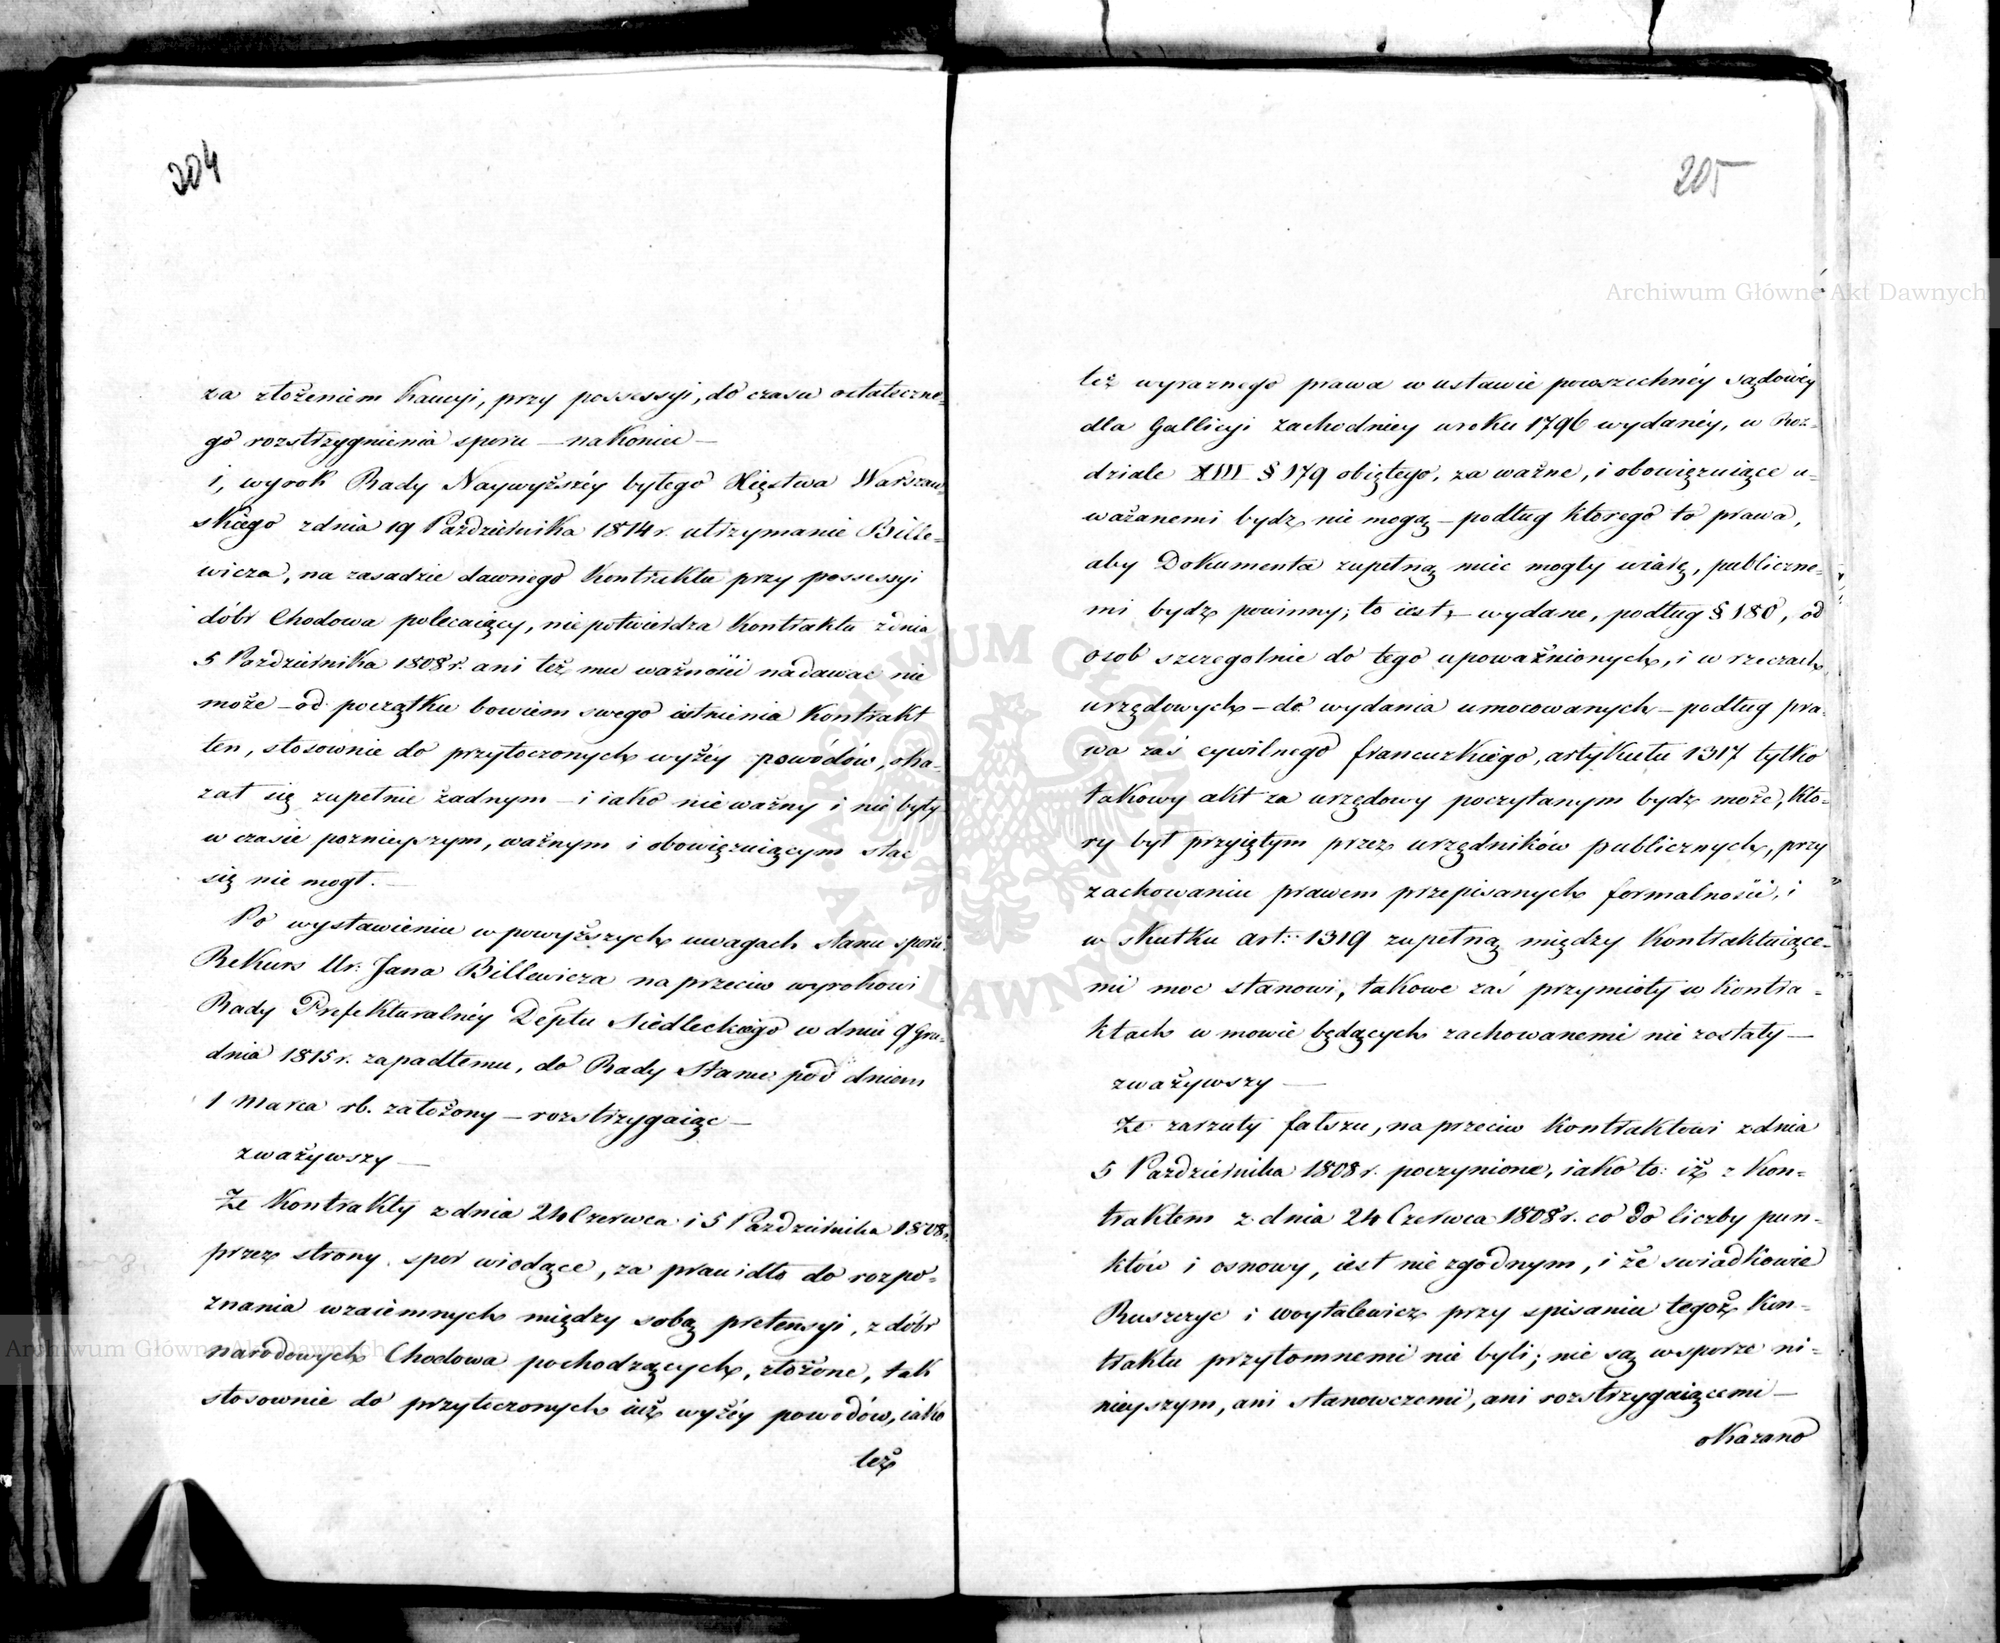 204
za złożeniem Kaucyi, przy possessyi, do czasu ostateczne-
go rozstrzygnienia sporu — nakoniec —
i, wyrok Rady Naywyższéy byłego Xięstwa Warszaw-
skiego z dnia 19 Października 1814 r. utrzymanie Bille-
wicza, na zasadzie dawnego Kontraktu przy possessyi
dóbr Chodowa polecaiący, nie potwierdza Kontraktu z dnia
5 Października 1808 r. ani też mu ważności nadawać nie
może — od początku bowiem swego istnienia Kontrakt
ten, stosownie do przytoczonych wyżéy powódów, oka-
zał się zupełnie żadnym — i iako nie ważny i nie były
w czasie poznieyszym, ważnym i obowięzuiącym stać
się nie mogł. —
Po wystawieniu w powyższych uwagach stanu sporu
Rekurs Ur: Jana Billewicza na przeciw wyrokowi
Rady Prefekturalnéy Deptu Siedleckiego w dniu 9 Gru-
dnia 1815 r. zapadłemu, do Rady Stanu pod dniem
1 Marca rb. założony — rozstrzygaiąc —
zważywszy —
Że Kontrakty z dnia 24 Czerwca i 5 Października 1808 r.
przez strony spor wiodące, za prawidło do rozpo-
znania wzaiemnych między sobą pretensyi, z dóbr
narodowych Chodowa pochodzących, złożone, tak
stosownie do przytoczonych iuż wyżéy powodów, iako
też
205
też wyraznego prawa w ustawie powszechnéy sądowéy
dla Gallicyi zachodniey w roku 1796 wydanéy, w Roz-
dziale XIII § 179 obiętego, za ważne, i obowięzuiące u-
ważanemi bydz nie mogą — podług ktorego to prawa,
aby Dokumenta zupełną mieć mogły wiarę, publiczne-
mi bydz powinny; to iest, — wydane, podług § 180, od
osob szczegolnie do tego upoważnionych, i w rzeczach
urzędowych — do wydania umocowanych — podług pra-
wa zaś cywilnego francuzkiego, artykułu 1317 tylko
takowy akt za urzędowy poczytanym bydz może, kto-
ry był przyiętym przez urzędników publicznych, przy
zachowaniu prawem przepisanych formalności, i
w skutku art: 1319 zupełną między Kontraktuiące-
mi moc stanowi, takowe zaś przymioty w kontra-
ktach w mowie będących zachowanemi nie zostały —
zważywszy —
Że zarzuty fałszu, na przeciw Kontraktowi z dnia
5 Października 1808 r. poczynione, iako to: iż z Kon-
traktem z dnia 24 Czerwca 1808 r. co do liczby pun-
któw i osnowy, iest nie zgodnym, i że swiadkowie
Ruszczyc i Woytalewicz przy spisaniu tegoż Kon-
traktu przytomnemi nie byli; nie są w sporze ni-
nieyszym, ani stanowczemi, ani rozstrzygaiącemi —
okazano
Archiwum Główne Akt Dawnych
Archiwum Główne Akt Dawnych
ARCHIWUM GŁÓWNE AKT DAWNYCH